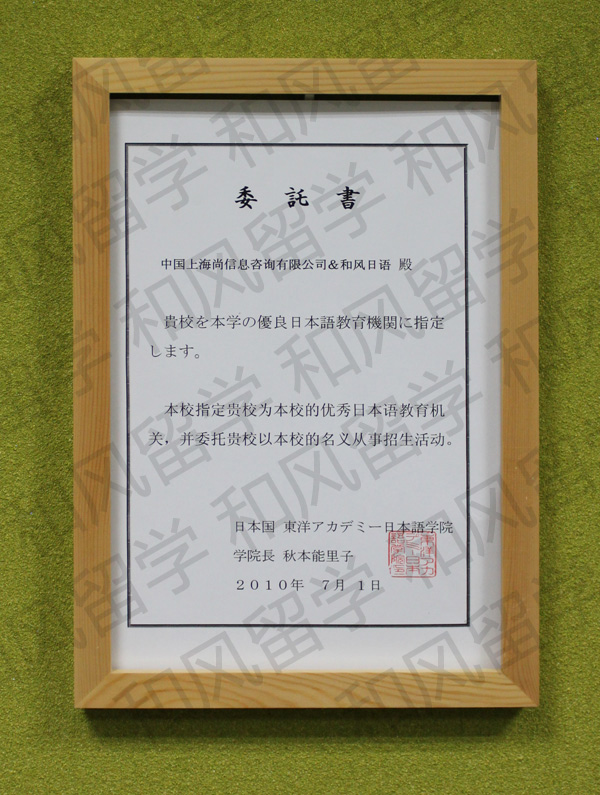 委託書
中国上海尚信息咨询有限公司&和风日语 殿
貴校を本学の優良日本語教育機関に指定
します。
本校指定贵校为本校的优秀日本语教育机
关，并委托贵校以本校的名义从事招生活动。
日本国 東洋アカデミー日本語学院
学院長 秋本能里子
２０１０年 ７月 １日
和风留学